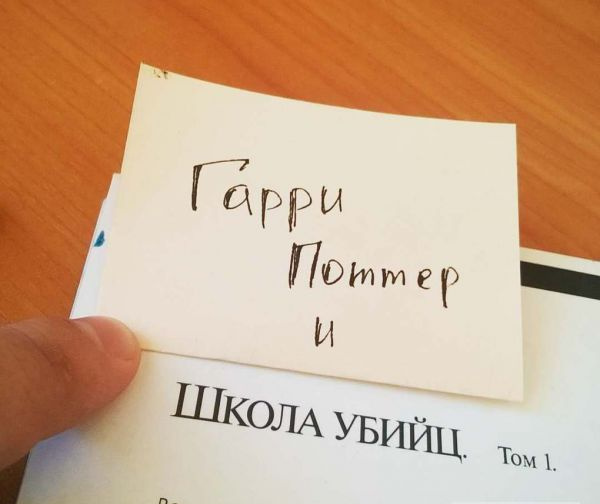 Гарри
Поттер
и
Школа убийц. Том 1.